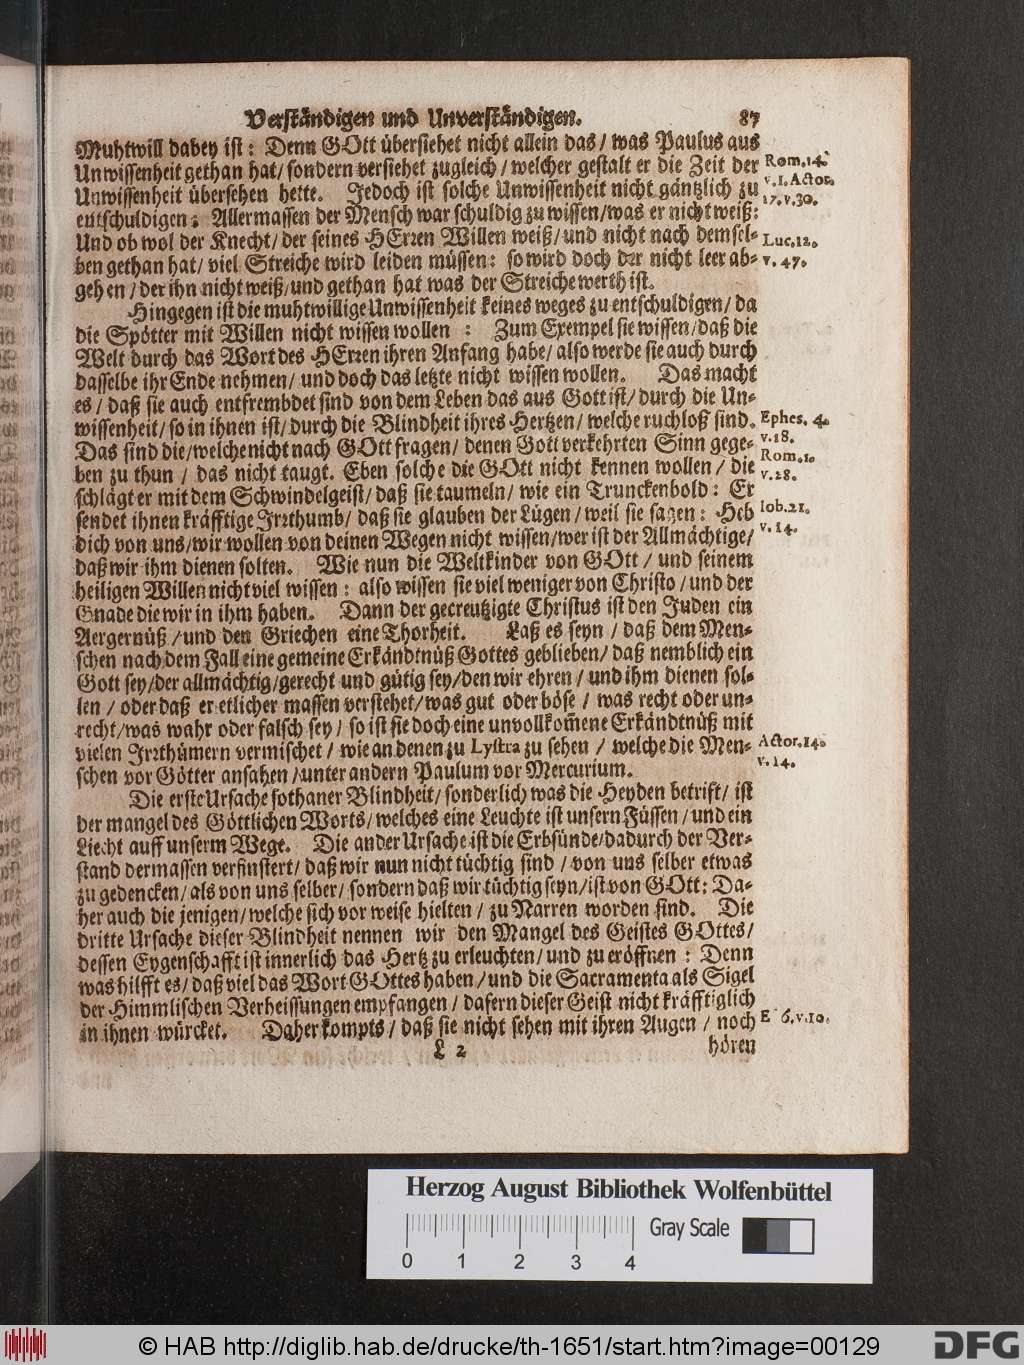 Verständigen und Unverständigen. 87
Muhtwill dabey ist: Denn GOtt übersiehet nicht allein das/ was Paulus aus
Unwissenheit gethan hat/ sondern versiehet zugleich/ welcher gestalt er die Zeit der
Rom. 14.
Unwissenheit übersehen hette. Jedoch ist solche Unwissenheit nicht gäntzlich zu
v. 1. Actor.
entschuldigen: Allermassen der Mensch war schuldig zu wissen/ was er nicht weiß:
17. v. 30.
Und ob wol der Knecht/ der seines HErren Willen weiß/ und nicht nach demsel-
Luc. 12.
ben gethan hat/ viel Streiche wird leiden müssen: so wird doch der nicht leer ab-
v. 47.
gehen/ der ihn nicht weiß/ und gethan hat was der Streiche werth ist.
Hingegen ist die muhtwillige Unwissenheit keines weges zu entschuldigen/ da
die Spötter mit Willen nicht wissen wollen : Zum Exempel sie wissen/ daß die
Welt durch das Wort des HErren ihren Anfang habe/ also werde sie auch durch
dasselbe ihr Ende nehmen/ und doch das letzte nicht wissen wollen. Das macht
es/ daß sie auch entfrembdet sind von dem Leben das aus Gott ist/ durch die Un-
wissenheit/ so in ihnen ist/ durch die Blindheit ihres Hertzen/ welche ruchloß sind.
Ephes. 4.
Das sind die/ welche nicht nach GOtt fragen/ denen Gott verkehrten Sinn gege-
v. 18.
Rom. 1.
ben zu thun/ das nicht taugt. Eben solche die GOtt nicht kennen wollen/ die
v. 28.
schlägt er mit dem Schwindelgeist/ daß sie taumeln/ wie ein Trunckenbold: Er
sendet ihnen kräfftige Irrthumb/ daß sie glauben der Lügen/ weil sie sagen: Heb
Iob. 21.
dich von uns/ wir wollen von deinen Wegen nicht wissen/ wer ist der Allmächtige/
v. 14.
daß wir ihm dienen solten. Wie nun die Weltkinder von GOtt/ und seinem
heiligen Willen nicht viel wissen: also wissen sie viel weniger von Christo/ und der
Gnade die wir in ihm haben. Dann der gecreutzigte Christus ist den Juden ein
Aergernüß/ und den Griechen eine Thorheit. Laß es seyn/ daß dem Men-
schen nach dem Fall eine gemeine Erkändtnüß Gottes geblieben/ daß nemblich ein
Gott sey/ der allmächtig/ gerecht und gütig sey/ den wir ehren/ und ihm dienen sol-
len/ oder daß er etlicher massen verstehet/ was gut oder böse/ was recht oder un-
recht/ was wahr oder falsch sey/ so ist sie doch eine unvollkom̃ene Erkändtnüß mit
vielen Irrthümern vermischet/ wie an denen zu Lystra zu sehen/ welche die Men-
Actor. 14.
schen vor Götter ansahen/ unter andern Paulum vor Mercurium.
v. 14.
Die erste Ursache sothaner Blindheit/ sonderlich was die Heyden betrift/ ist
der mangel des Göttlichen Worts/ welches eine Leuchte ist unsern Füssen/ und ein
Liecht auff unserm Wege. Die ander Ursache ist die Erbsünde/ dadurch der Ver-
stand dermassen verfinstert/ daß wir nun nicht tüchtig sind/ von uns selber etwas
zu gedencken/ als von uns selber/ sondern daß wir tüchtig seyn/ ist von GOtt: Da-
her auch die jenigen/ welche sich vor weise hielten/ zu Narren worden sind. Die
dritte Ursache dieser Blindheit nennen wir den Mangel des Geistes GOttes/
dessen Eygenschafft ist innerlich das Hertz zu erleuchten/ und zu eröffnen: Denn
was hilfft es/ daß viel das Wort GOttes haben/ und die Sacramenta als Sigel
der Himmlischen Verheissungen empfangen/ dafern dieser Geist nicht kräfftiglich
in ihnen würcket. Daher kompts/ daß sie nicht sehen mit ihren Augen/ noch
6. v. 10.
L 2 hören
Herzog August Bibliothek Wolfenbüttel
Gray Scale
0 1 2 3 4
© HAB http://diglib.hab.de/drucke/th-1651/start.htm?image=00129
DFG